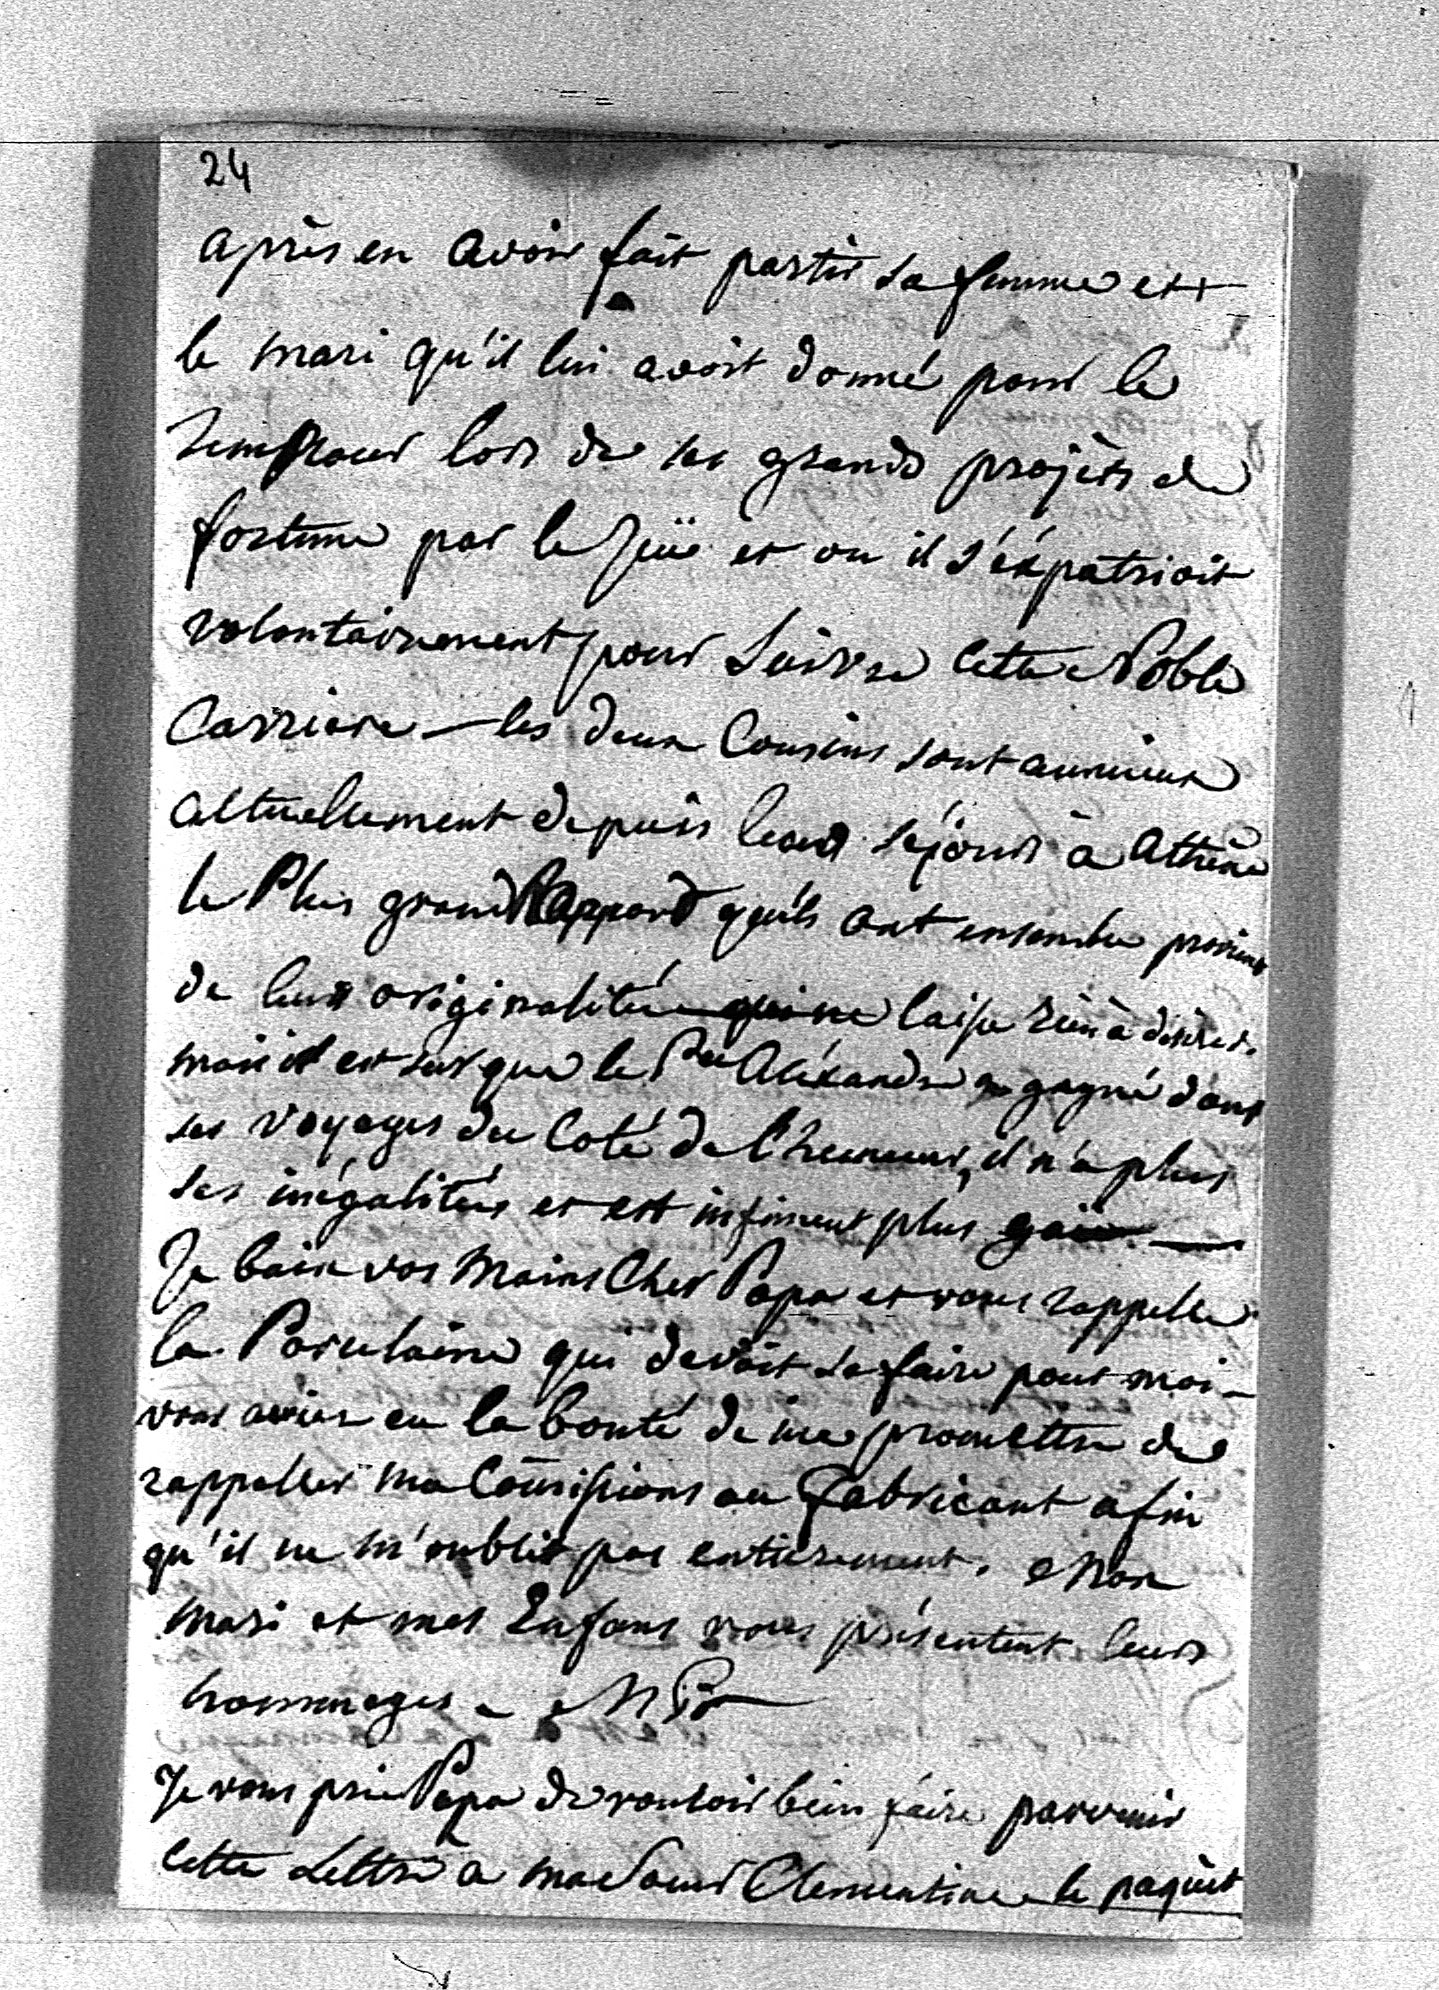 24
après en avoir fait partir sa femme et
le mari qu'il lui avoit donné pour le
remplacer lors de ses grands projèts de
fortune par le Jeü et où il s'éxpatrioit
volontairement pour suivre cette Noble
Carriere — les deux Cousins sont au mieux
actuellement depuis leur séjour à Athène
le Plus grand Rapport qu'ils ont ensemble provient
de leur originalité qui ne laisse rien à désirer.
mais il est sur que le Pce Aléxandre a gagné dans
ses voyages du Coté de l'humeur, il n'a plus
ses inégalités et est infiniment plus gai —
Je baise vos Mains Cher Papa et vous rappelle
la Porcelaine qui devoit se faire pour moi —
vous aviez eu la bonté de me promettre de
rappeller ma Comissions au fabricant afin
qu'il ne m'oublie pas entierement. Mon
mari et mes Enfans vous présentent leurs
hommages —
Je vous prie Papa de vouloir bien faire parvenir
cette Lettre a ma Soeur Clementine — le paquèt